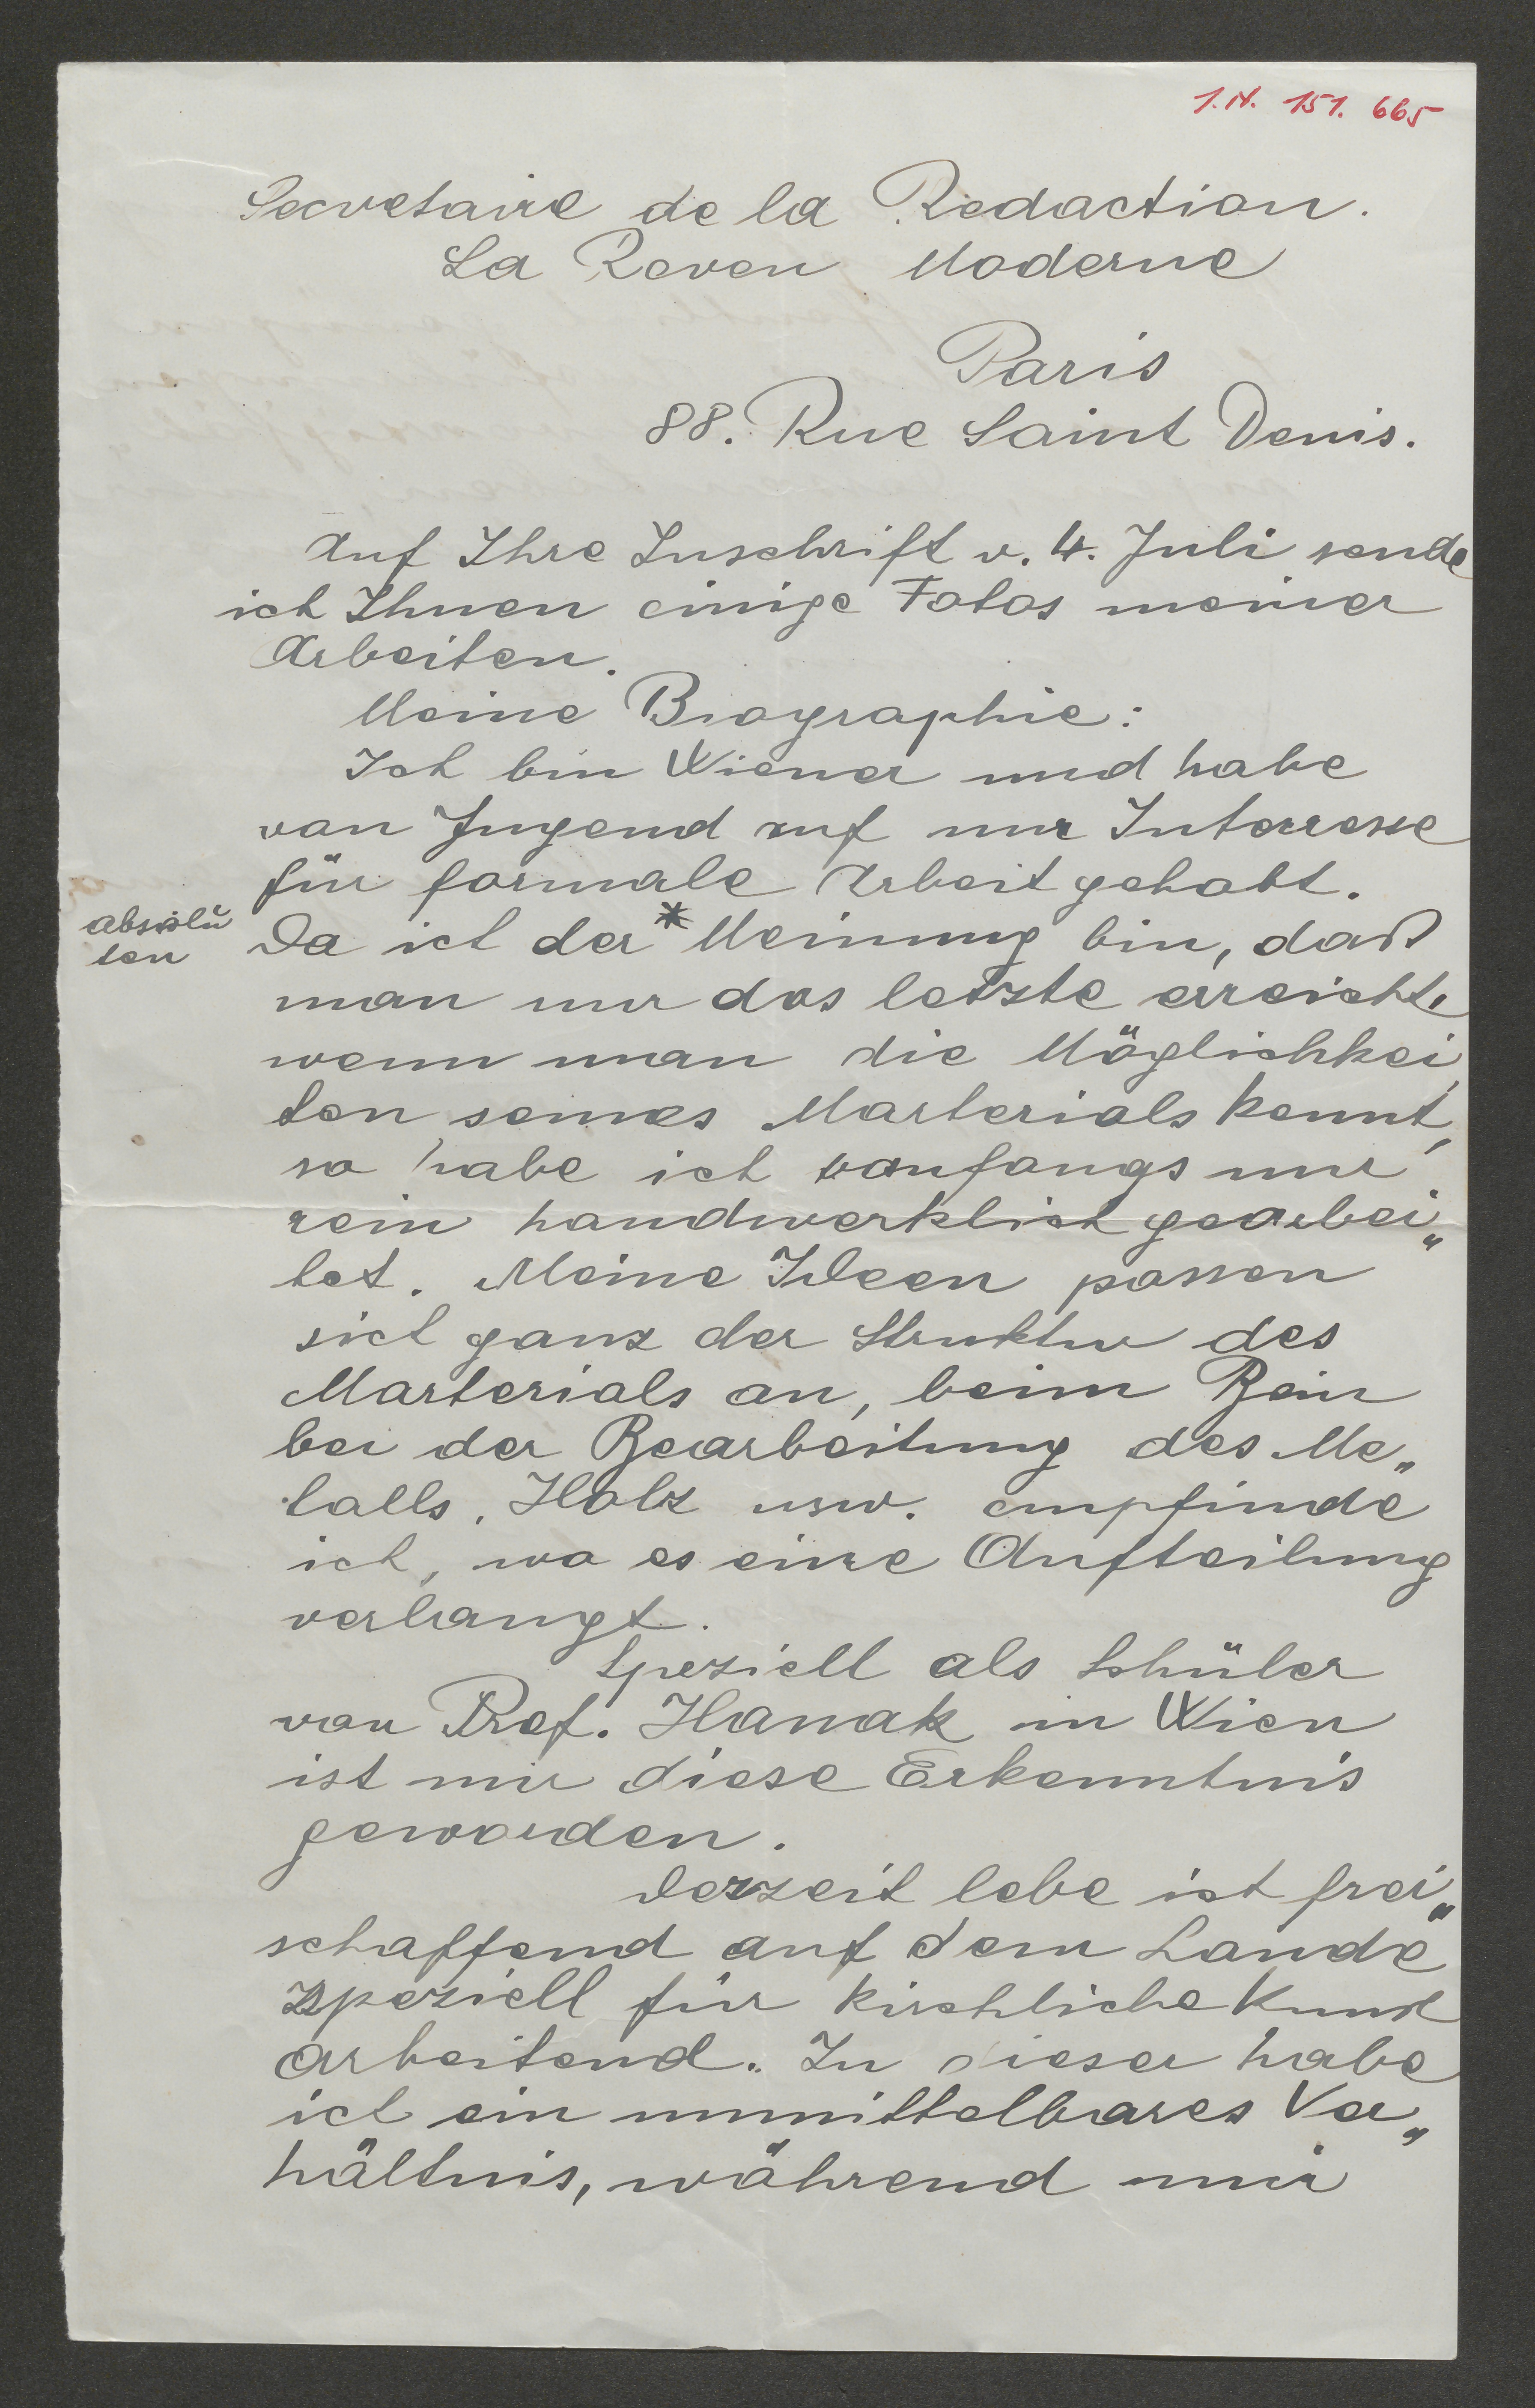 I.N. 151.665
Secretaire de la Redaction.
La Reven Moderne
Paris
88. Rue Saint Denis.
Auf Ihre Zuschrift v. 4. Juli sende
ich Ihnen einige Fotos meiner
Arbeiten.
Meine Biographie:
Ich bin Wiener und habe
von Jugend auf nur Interresse
für formale Arbeit gehabt.
absolu
ten
Da ich der * Meinung bin, daß
man nur das letzte erreicht,
wenn man die Möglichkei
ten seines Marterials kennt,
so habe ich anfangs nur
rein handwerklich gearbei„
tet. Meine Ideen passen
sich ganz der Struktur des
Marterials an, beim Bein
bei der Bearbeitung des Me„
talls, Holz usw. empfinde
ich, wo es eine Aufteilung
verlangt.
Speziell als Schüler
von Prof. Hanak in Wien
ist mir diese Erkenntnis
geworden.
Derzeit lebe ich frei„
schaffend auf dem Lande
speziell für kirchliche Kunst
arbeitend. In dieser habe
ich ein unmittelbares Ver„
hältnis, während mir